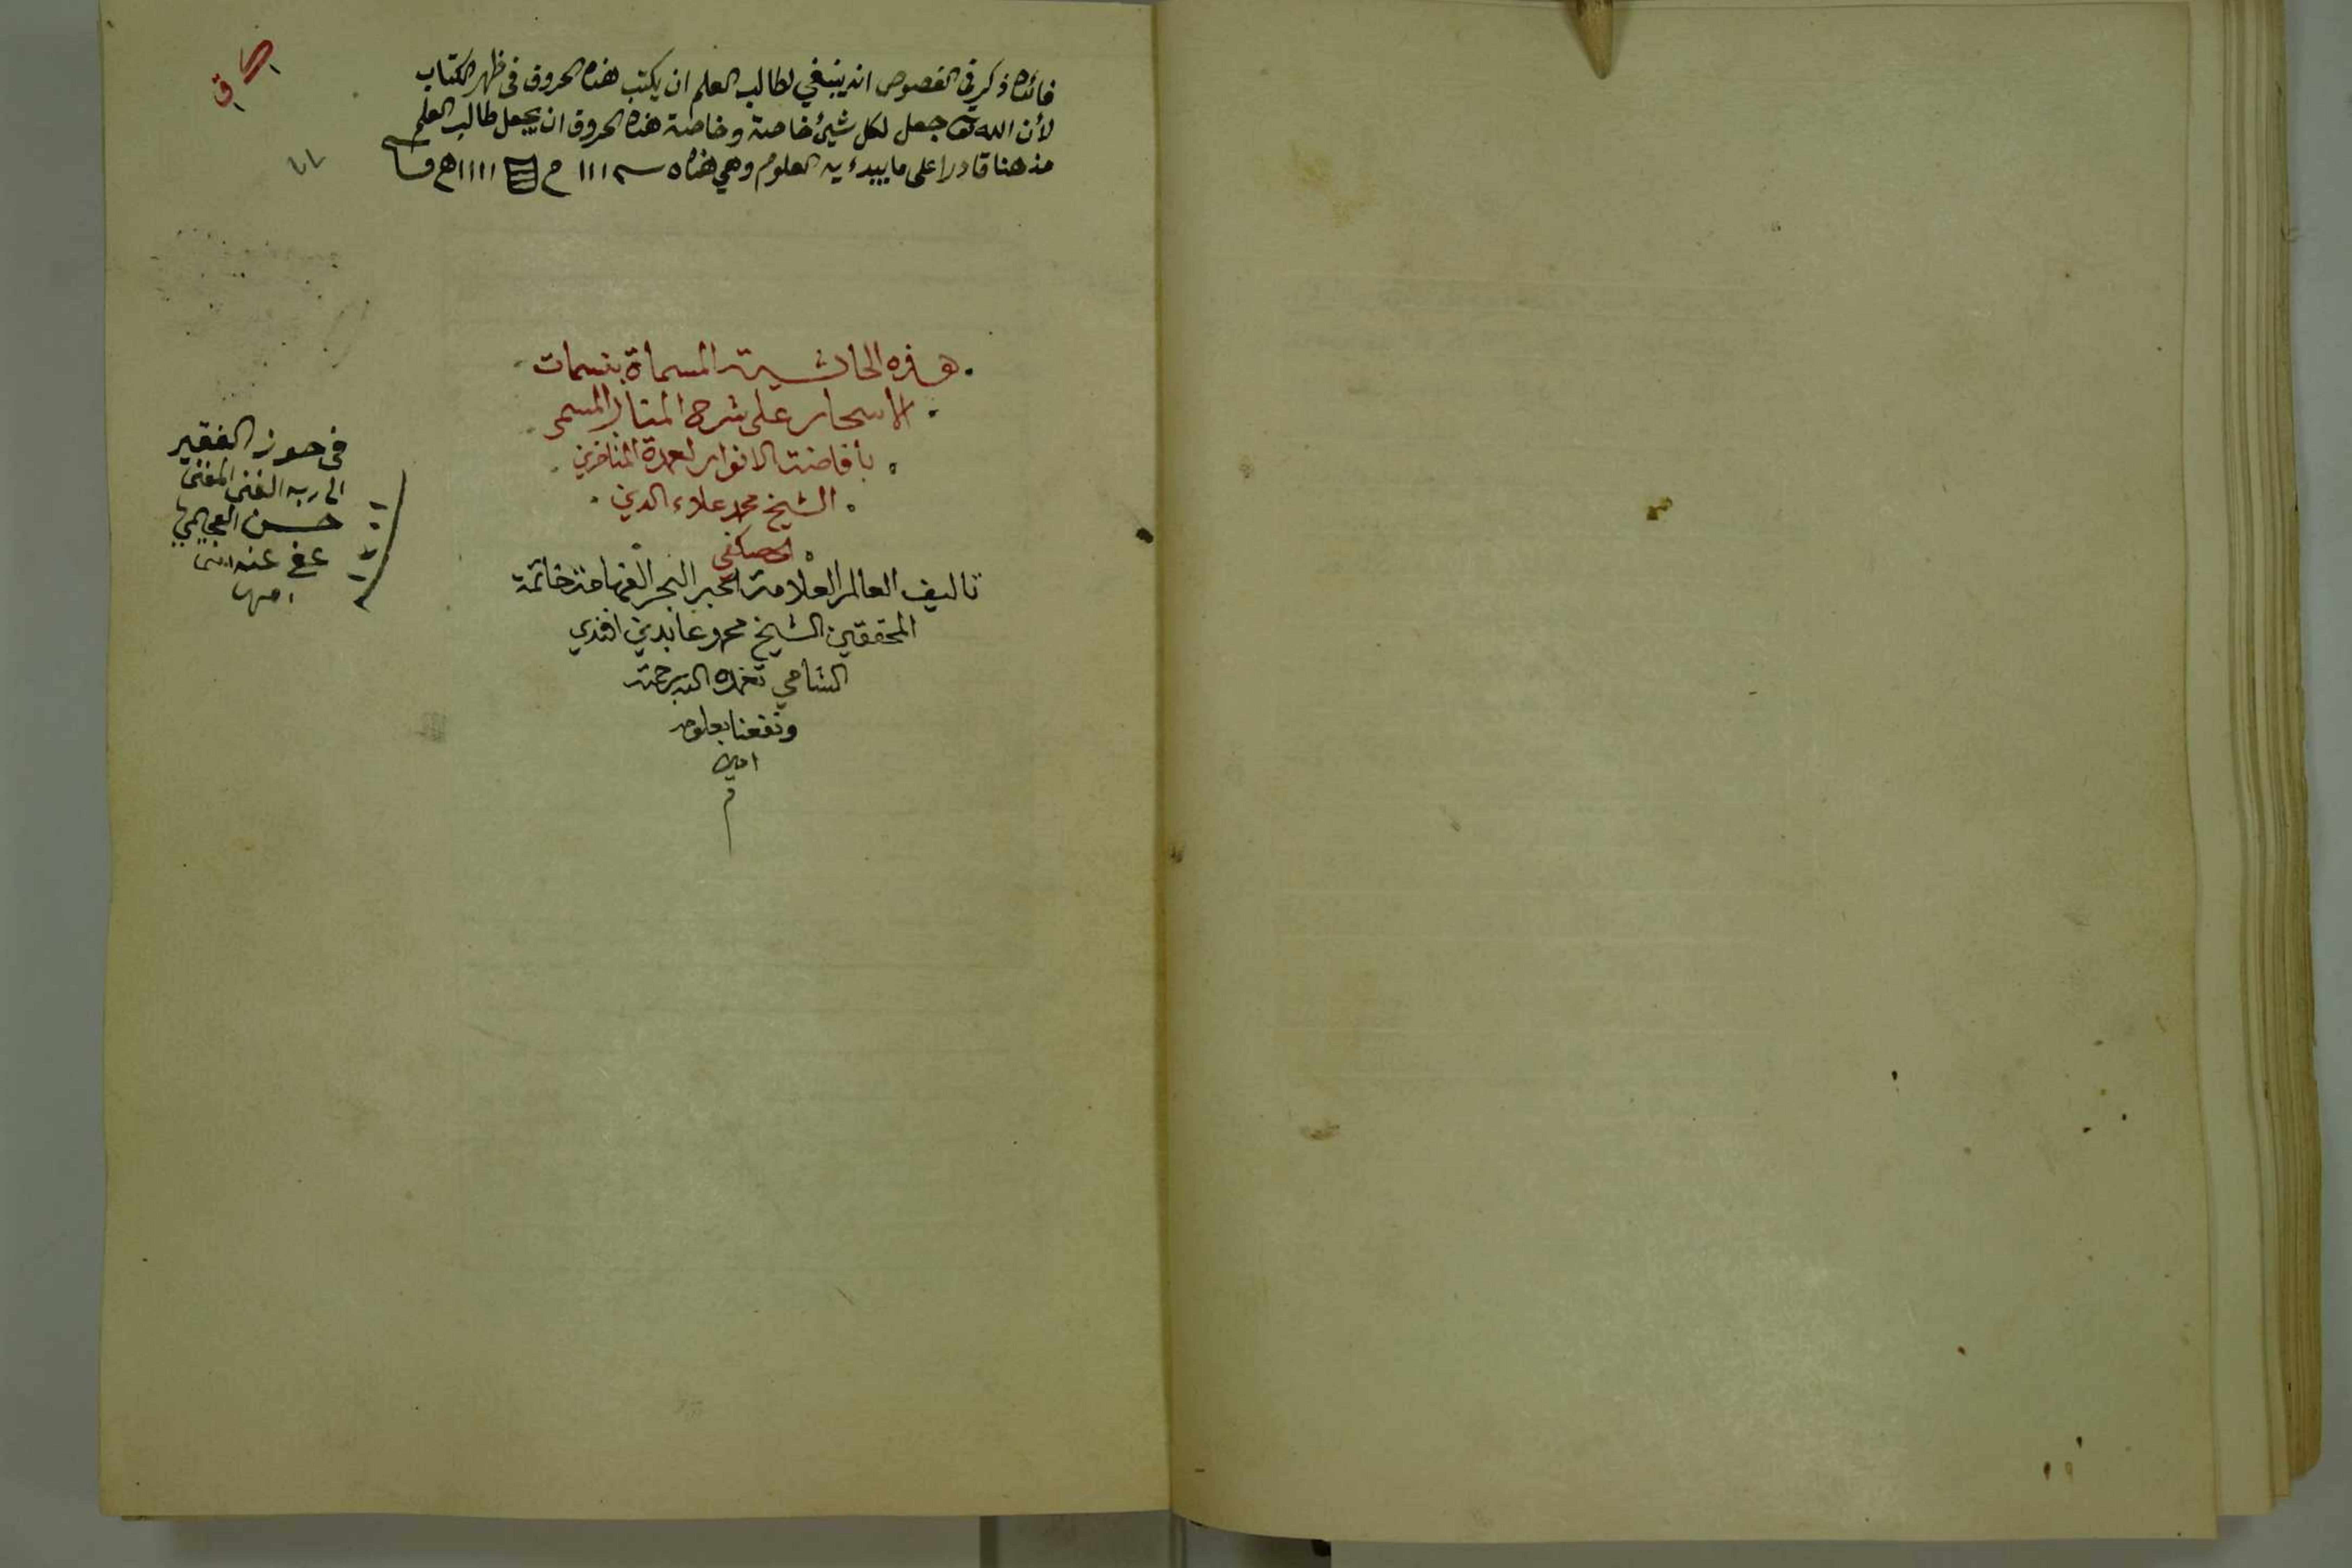 فائدة ذكر في الفصوص انه ينبغي لطالب العلم ان يكتب هذه الحروف في ظهر الكتاب
لأن الله تعالى جعل لكل شيئ خاصة وخاصة هذه الحروف ان يجعل طالب العلم
قادرا على ما يبدء به العلوم وهي هذه
هذه الحاشية المسماة بنسمات
الاسحار على شرح المنار المسمى
بأفاضة الانوار لعمدة المتأخرين
الشيخ محمد علاء الدين
الحصكفي
تاليف العالم العلامة الحبر البحر الفهامة خاتمة
المحققين الشيخ محمد عابدين افندي
الشامي تغمده الله برحمته
ونفعنا بعلومه
امين
م
في حوز الفقير
الى ربه الغني المغني
حسن
عفي عنه
امين